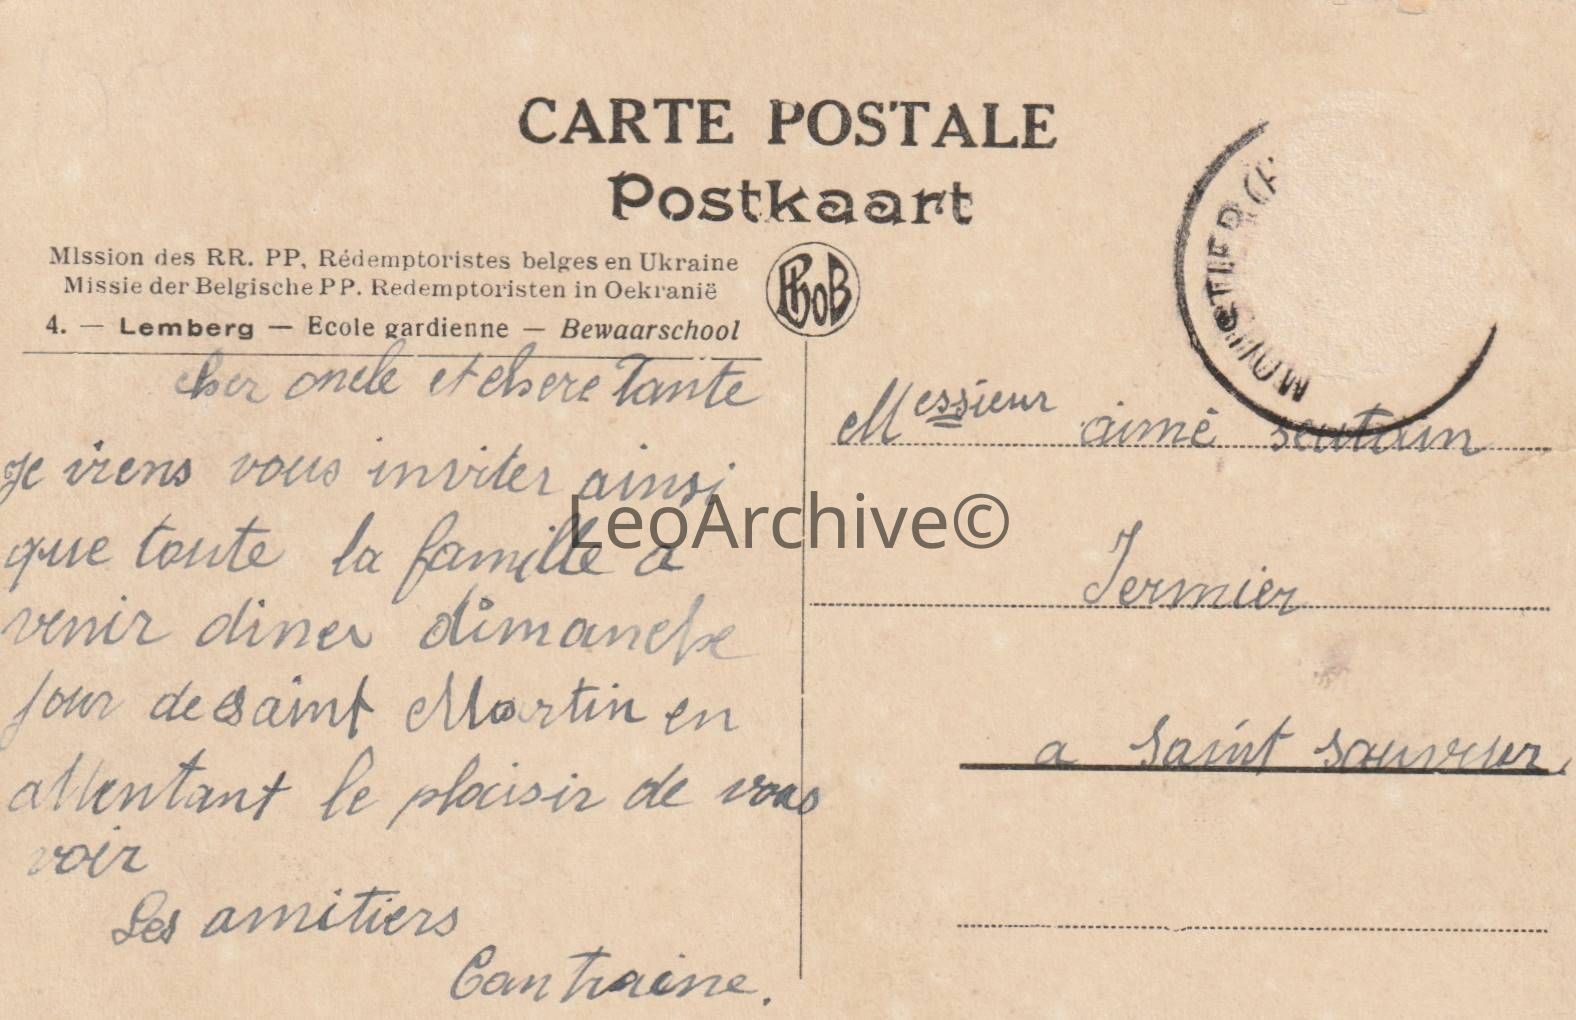 CARTE POSTALE
Postkaart
Mission des RR. PP, Rédemptoristes belges en Ukraine
Missie der Belgische PP. Redemptoristen in Oekranië
4. — Lemberg — Ecole gardienne — Bewaarschool
PhoB
MOUSTIER (H
cher oncle et chere Tante
Je viens vous inviter ainsi
que toute la famille a
venir diner dimanche
jour de saint Martin en
attentant le plaisir de vous
voir
Les amitiers
Cantraine.
Messieur aimé seutain
Fermier
a Saint Sauveur.
LeoArchive©